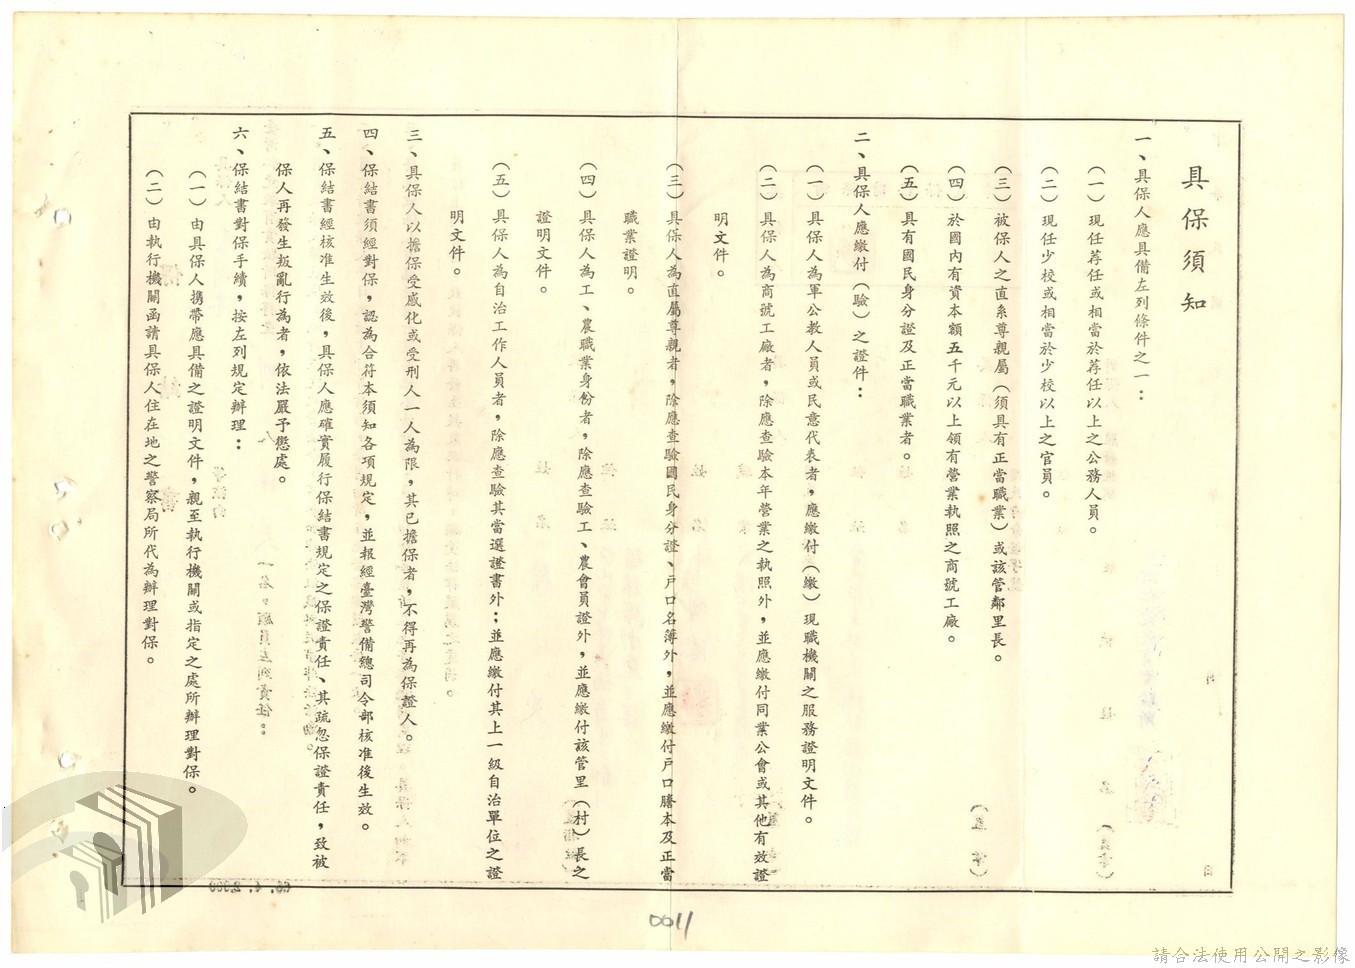 具保須知
一、具保人應具備左列條件之一：
（一）現任荐任或相當於荐任以上之公務人員。
（二）現任少校或相當於少校以上之官員。
（三）被保人之直系尊親屬（須具有正當職業）或該管鄰里長。
（四）於國內有資本額五千元以上領有營業執照之商號工廠。
（五）具有國民身分證及正當職業者。
二、具保人應繳付（驗）之證件：
（一）具保人為軍公教人員或民意代表者，應繳付（繳）現職機關之服務證明文件。
（二）具保人為商號工廠者，除應查驗本年營業之執照外，並應繳付同業公會或其他有效證
明文件。
（三）具保人為直屬尊親者，除應查驗國民身分證、戶口名簿外，並應繳付戶口謄本及正當
職業證明。
（四）具保人為工、農職業身份者，除應查驗工、農會員證外，並應繳付該管里（村）長之
證明文件。
（五）具保人為自治工作人員者，除應查驗其當選證書外；並應繳付其上一級自治單位之證
明文件。
三、具保人以擔保受感化或受刑人一人為限，其已擔保者，不得再為保證人。
四、保結書須經對保，認為合符本須知各項規定，並報經臺灣警備總司令部核准後生效。
五、保結書經核准生效後，具保人應確實履行保結書規定之保證責任、其疏忽保證責任，致被
保人再發生叛亂行為者，依法嚴予懲處。
六、保結書對保手續，按左列規定辦理：
（一）由具保人携帶應具備之證明文件，親至執行機關或指定之處所辦理對保。
（二）由執行機關函請具保人住在地之警察局所代為辦理對保。
0011
請合法使用公開之影像